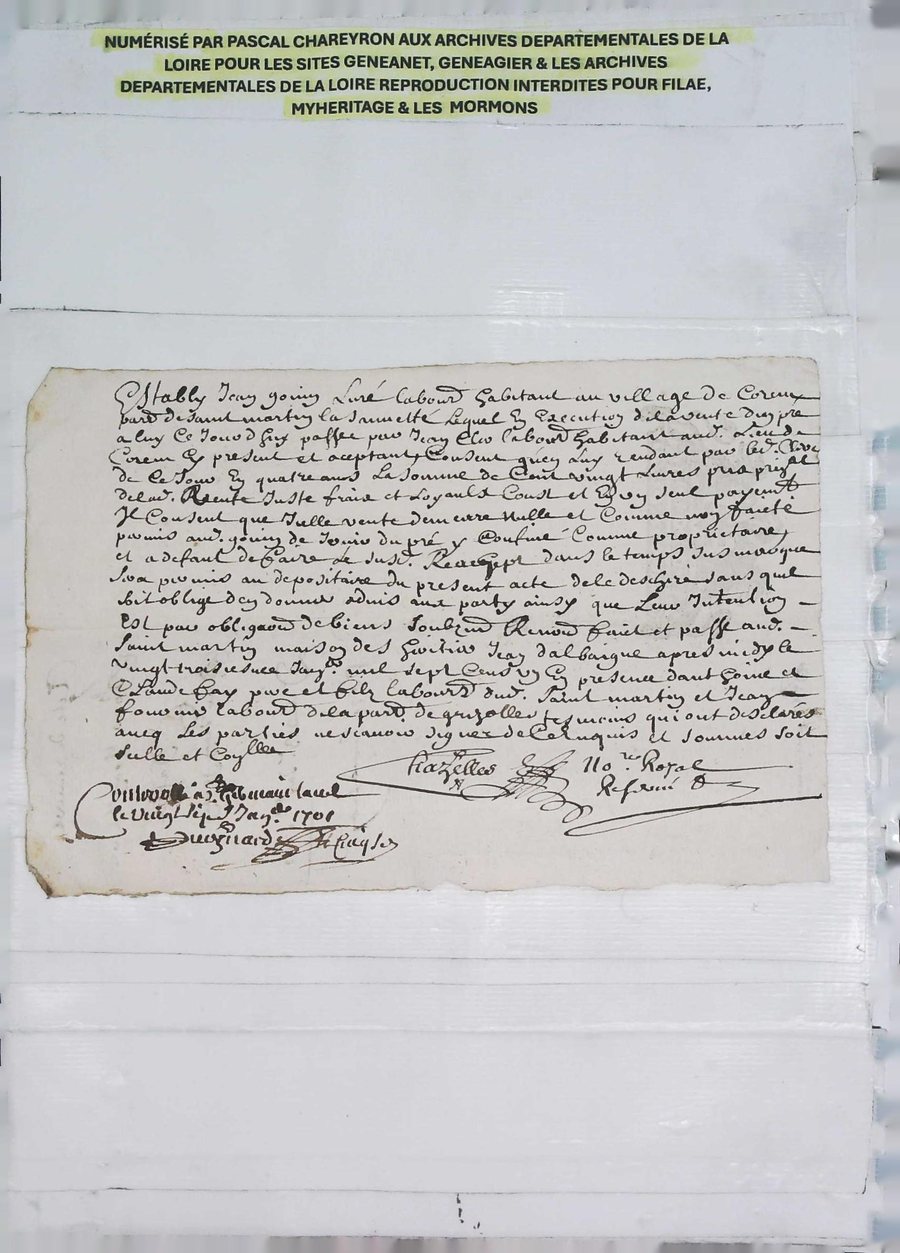 NUMÉRISÉ PAR PASCAL CHAREYRON AUX ARCHIVES DEPARTEMENTALES DE LA
LOIRE POUR LES SITES GENEANET, GENEAGIER & LES ARCHIVES
DEPARTEMENTALES DE LA LOIRE REPRODUCTION INTERDITES POUR FILAE,
MYHERITAGE & LES MORMONS
Establi Jean gonin labourd habitant au village de
parr de Saint martin la lequel En Execution de la vente dun pre
a luy Ce Jourdhuy passee par Jean labourd habitant aud. Lieu de
present et aceptant Consent quen Luy rendant par led.
de Ce Jour En quatre ans La somme de Cent vingt Livres
delad. Vente Juste fraix et Loyaulx Coust et En Un seul payemt
Il Consent que Jcelle vente demeure Nulle et Comme non faicte
permis aud. gonin de Jouir du pré y Confiné Comme proprietaire
et a defaut de faire Le susd. Reachept dans le temps sus marque
sera permis au depositaire du present acte de le deschire sans quil
soit oblige den donner advis aux partys ainsy que Leur Intention
Est par obligaon de biens renon faict et passe aud.
Saint martin maison des Jean dalbaigue apres midy le
vingt-troisiesme Janr. mil sept Cens Un En presence danthoine et
Claude fay pere et filz labourd dud. Saint martin et Jean
labourd de la parr. de tesmoins qui ont desclarés
aveq Les parties ne scavoir signer de Ce Enquis et sommes soit
Scelle et
Chazelles No.re Royal
Contrerollé a St. Germain laval
le vingt sept Janr. 1701